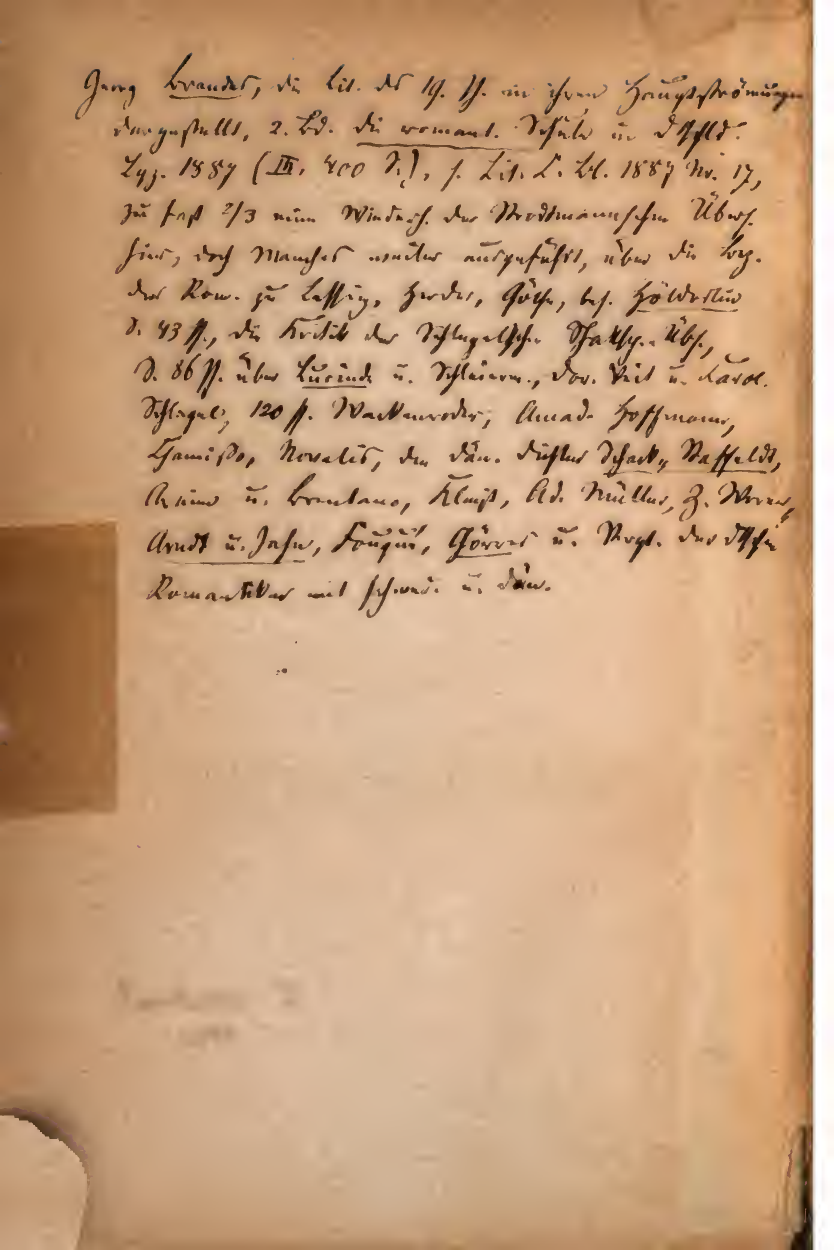 Georg Brandes, die Lit. des 19. Jh. in ihren Hauptströmungen
dargestellt, 2. Bd. die romant. Schule in Dtschld.
Lpz. 1887 (III, 400 S.), s. Lit. C. Bl. 1887 Nr. 17,
zu fast 2/3 eine Wiederh. der Strodtmannschen Übers.
hier, doch Manches weiter ausgeführt, über die Bez.
der Rom. zu Lessing, Herder, Göthe, bes. Hölderlin
S. 43 ff., die Kritik der Schlegelschen Shaksp. Übs.,
S. 86 ff. über Lucinde u. Schleierm., Dor. Veit u. Karol.
Schlegel, 120 ff. Wackenroder, Amad. Hoffmann,
Chamisso, Novalis, den dän. Dichter Schack, Staffeldt,
Arnim u. Brentano, Kleist, Ad. Müller, Z. Werner,
Arndt u. Jahn, Fouqué, Görres u. Vergl. der dtschen
Romantiker mit schwed. u. dän.